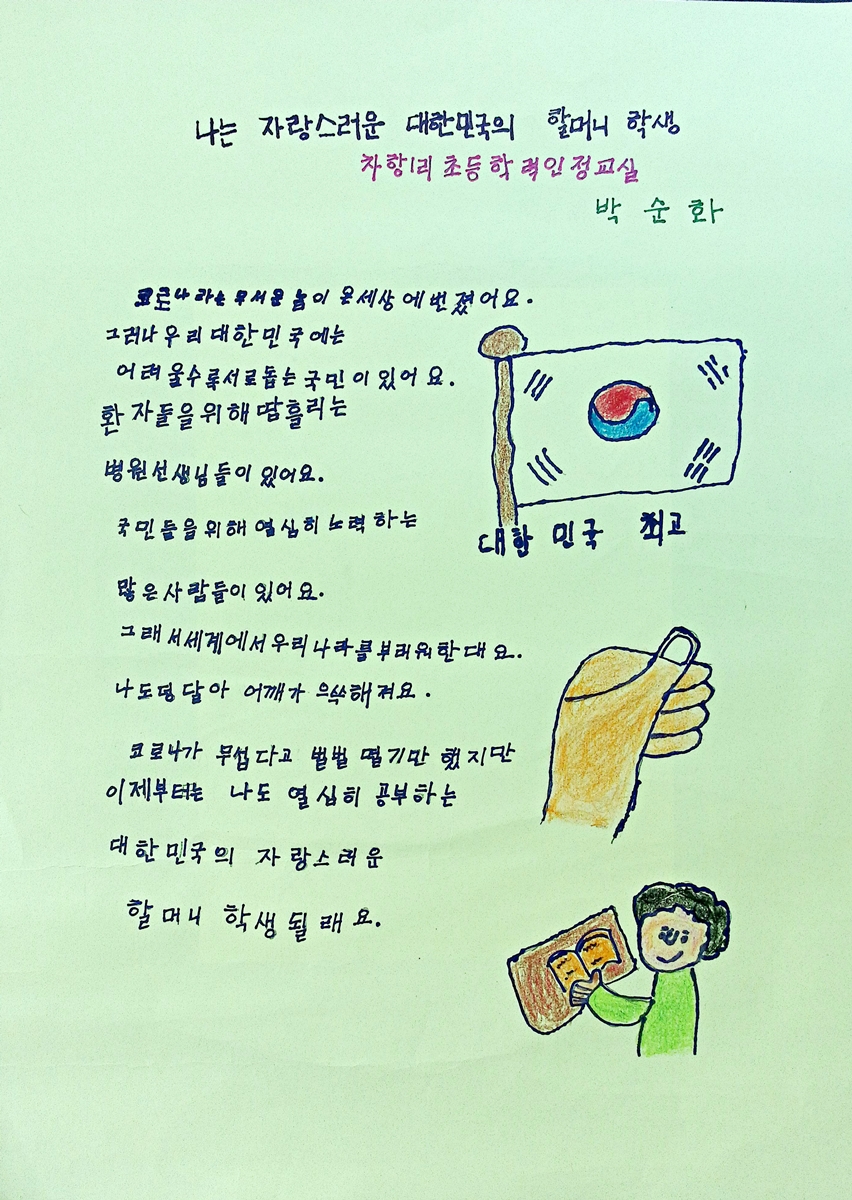 나는 자랑스러운 대한민국의 할머니 학생
차항1리 초등학력인정교실
박순화
코로나라는 무서운 놈이 온세상에 번졌어요.
그러나 우리 대한민국에는
어려울수록 서로 돕는 국민이 있어요.
환자들을 위해 땀흘리는
병원선생님들이 있어요.
국민들을 위해 열심히 노력하는
많은 사람들이 있어요.
그래서 세계에서 우리나라를 부러워한대요.
나도 덩달아 어깨가 으쓱해져요.
코로나가 무섭다고 벌벌 떨기만 했지만
이제부터는 나도 열심히 공부하는
대한민국의 자랑스러운
할머니 학생될래요.
대한민국 최고